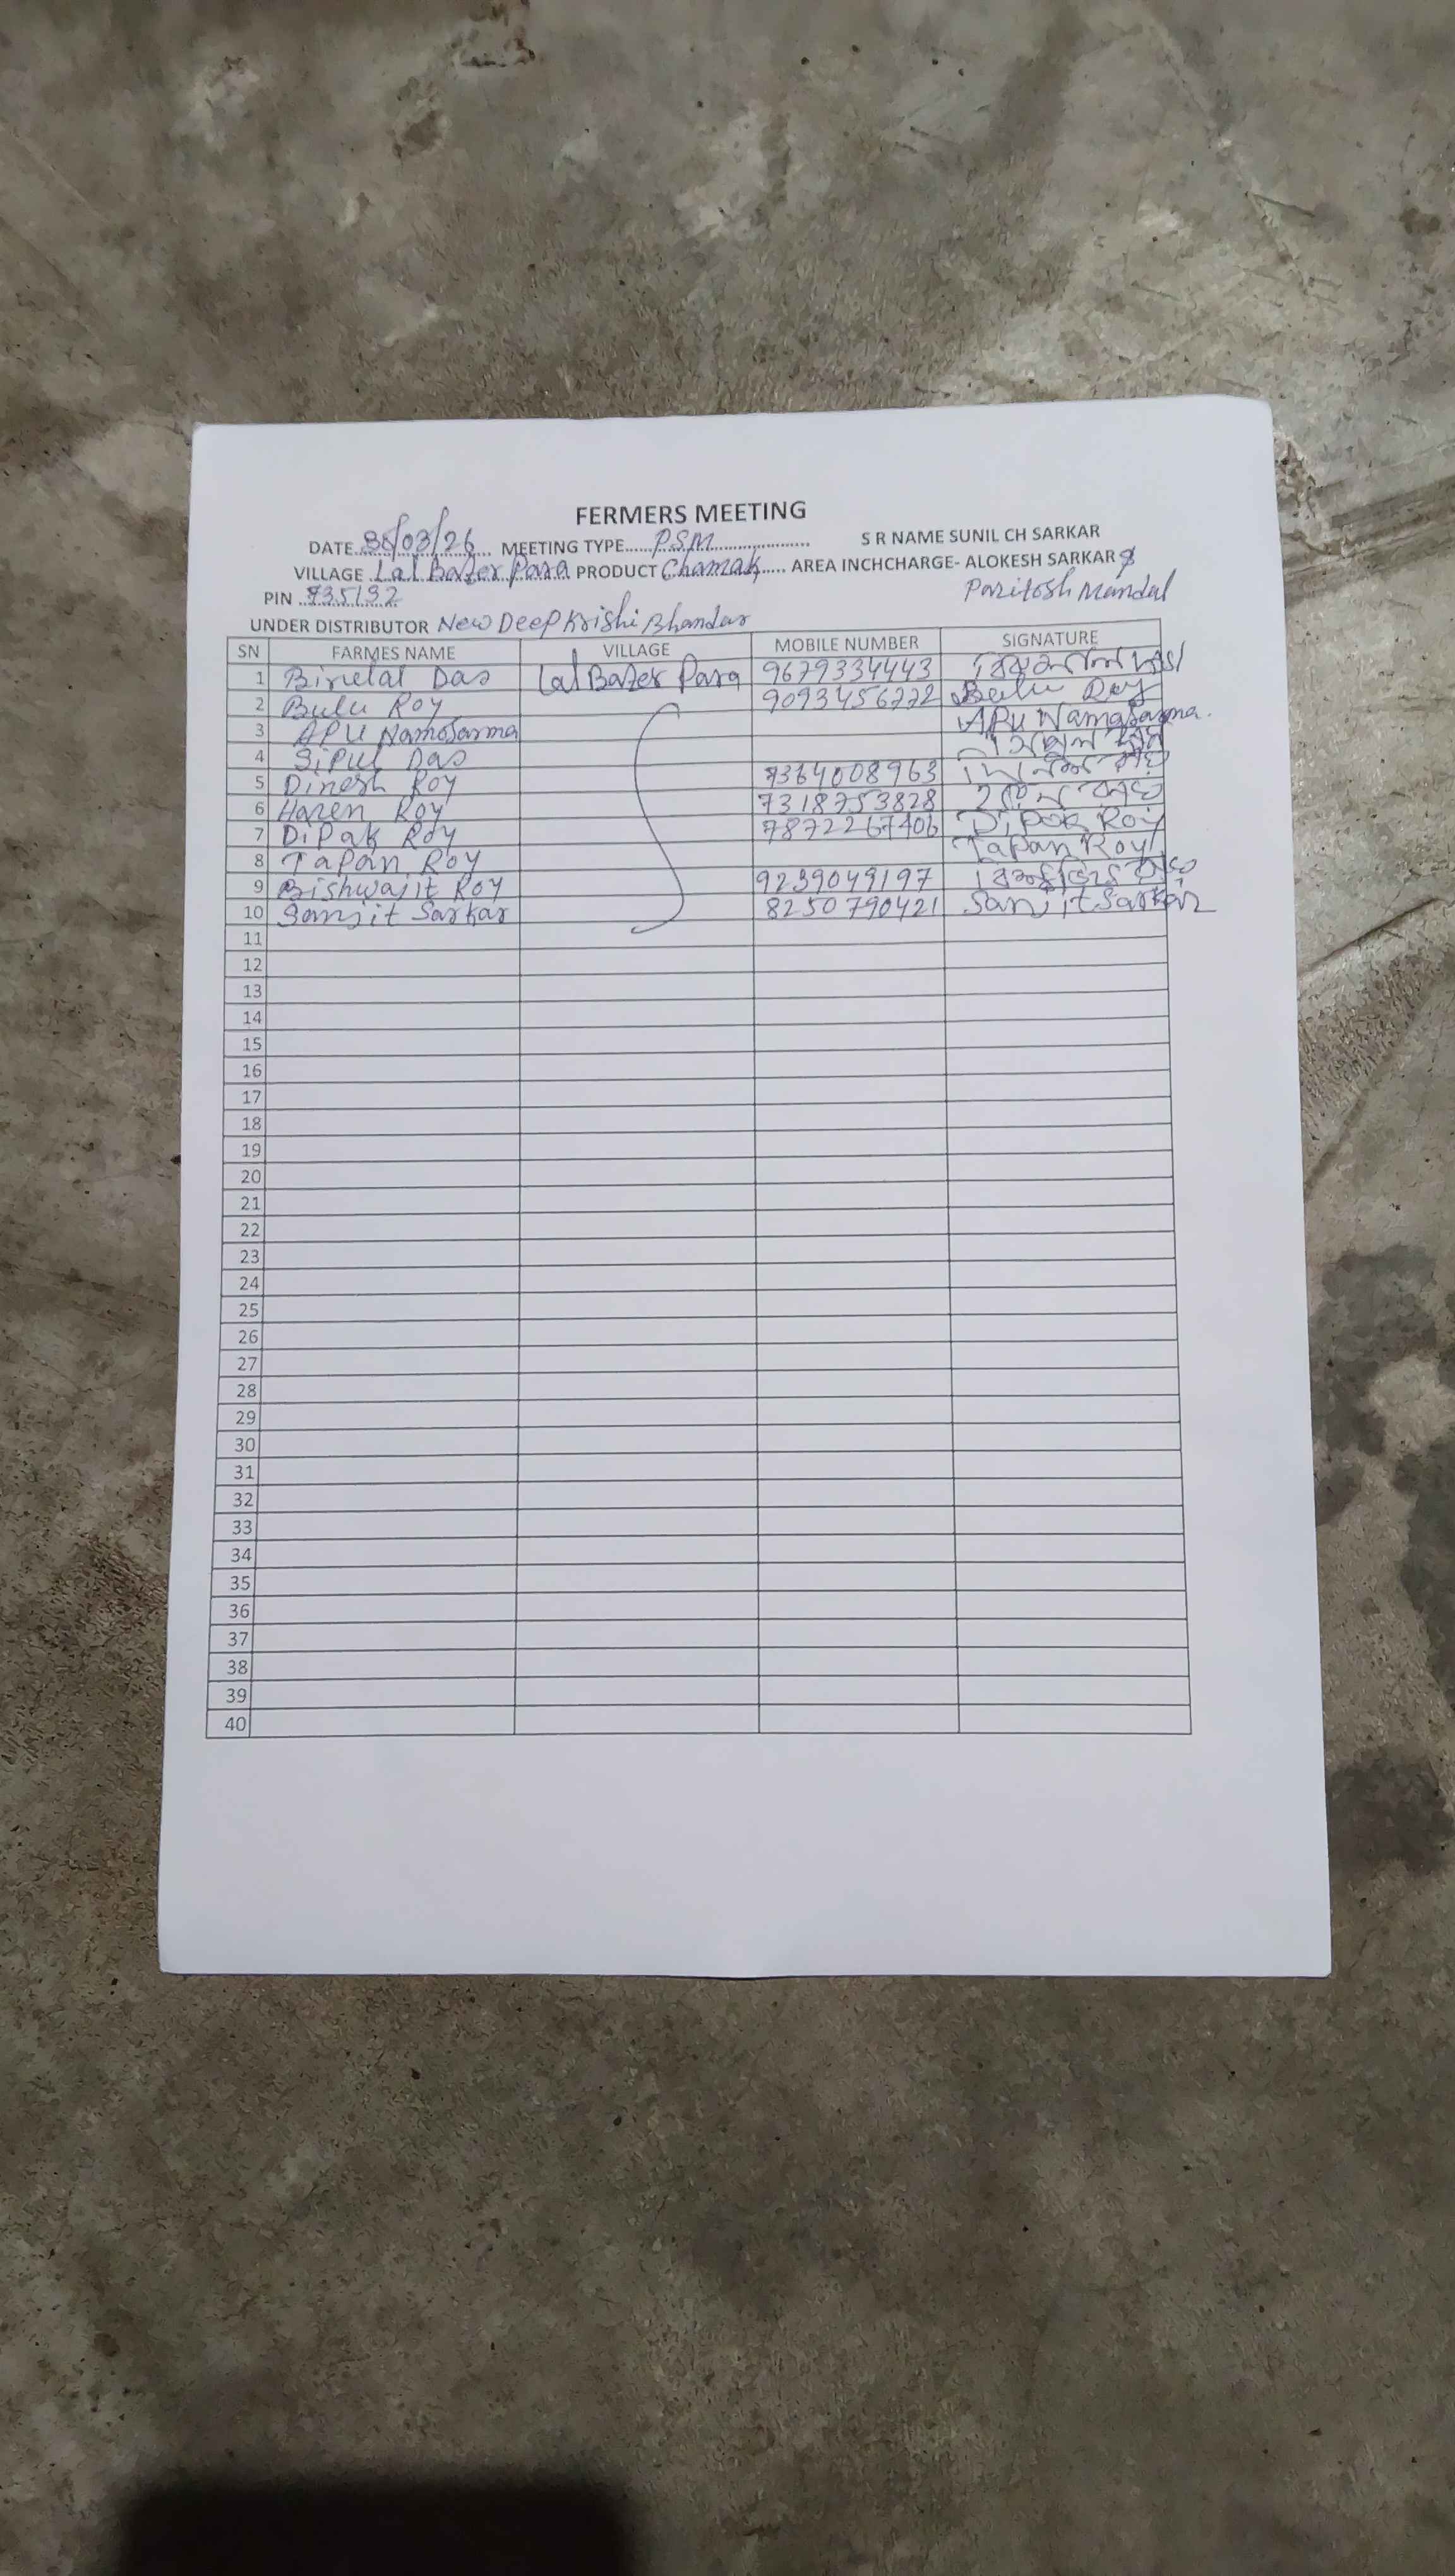 FERMERS MEETING
DATE 30/03/26 MEETING TYPE PSM S R NAME SUNIL CH SARKAR
VILLAGE Lal Bazer Para PRODUCT Chamak AREA INCHCHARGE- ALOKESH SARKAR &
PIN 735132 Paritosh Mandal
UNDER DISTRIBUTOR New Deep Krishi Bhandar
SN FARMES NAME VILLAGE MOBILE NUMBER SIGNATURE
1 Birelal Das Lal Bazer Para 9679334443
2 Bulu Roy 9093456772 Bulu Roy
3 APU Namosarma APU Namosarma.
4 Bipul Das
5 Dinesh Roy 7364008963
6 Haren Roy 7318753828
7 Dipak Roy 7872267406 Dipak Roy
8 Tapan Roy Tapan Roy
9 Bishwajit Roy 9239049197
10 Sanjit Sarkar 8250790421 Sanjit Sarkar
11
12
13
14
15
16
17
18
19
20
21
22
23
24
25
26
27
28
29
30
31
32
33
34
35
36
37
38
39
40